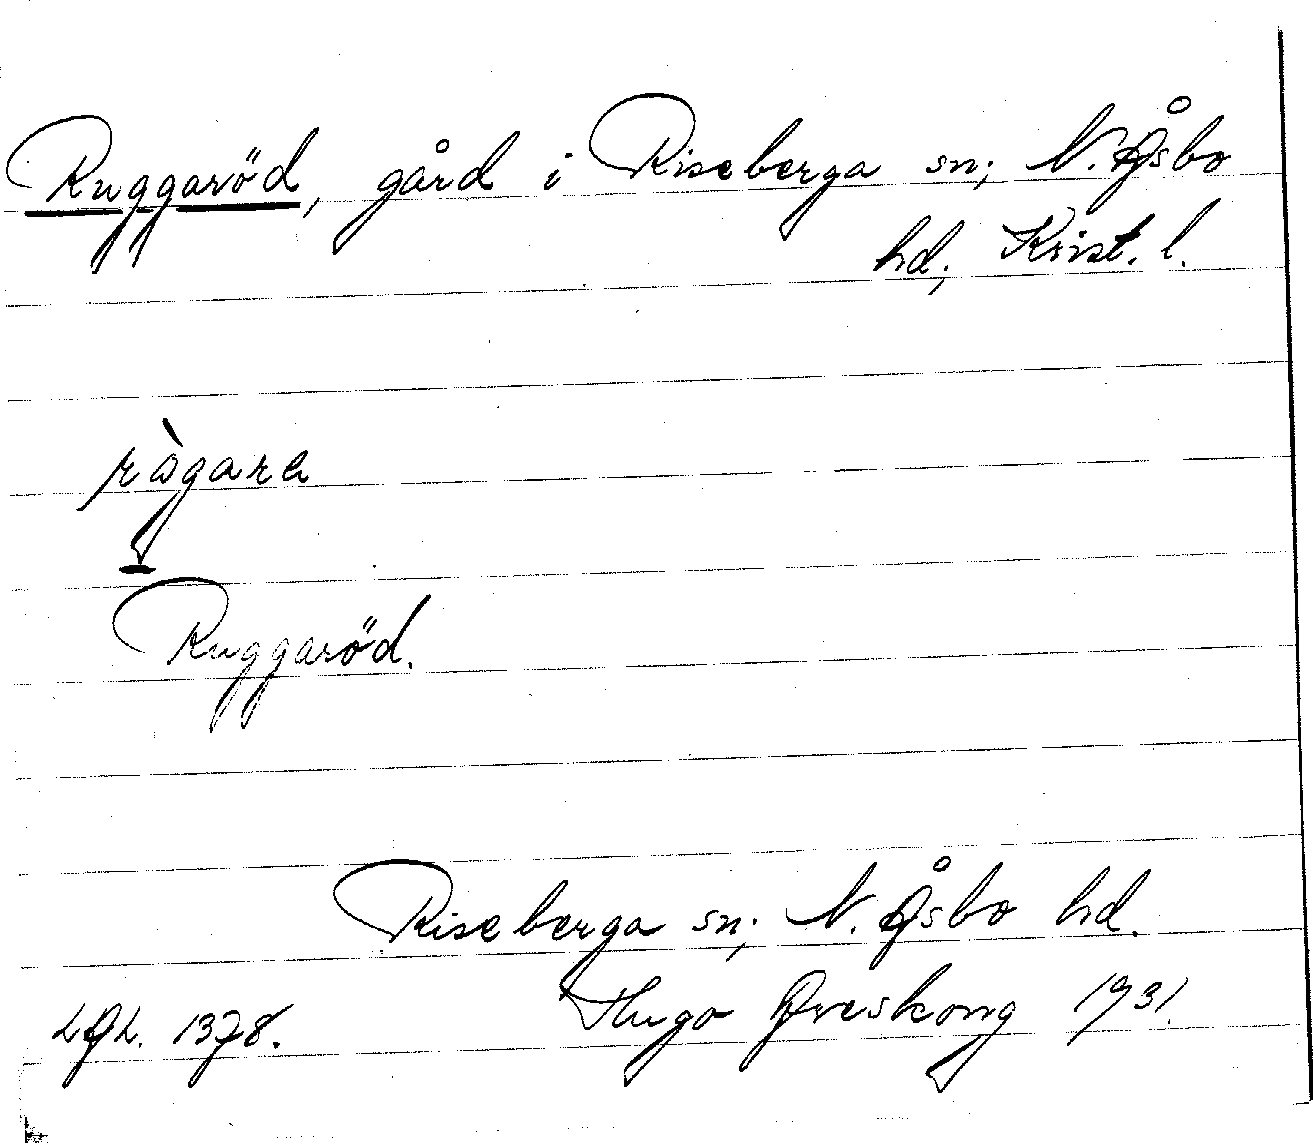 Ruggaröd, gård i Riseberga sn; N. Åsbo
hd; Krist. l.
rògara
Ruggaröd.
Riseberga sn; N. Åsbo hd.
LAL. 1378. Hugo Areskoug 1931.